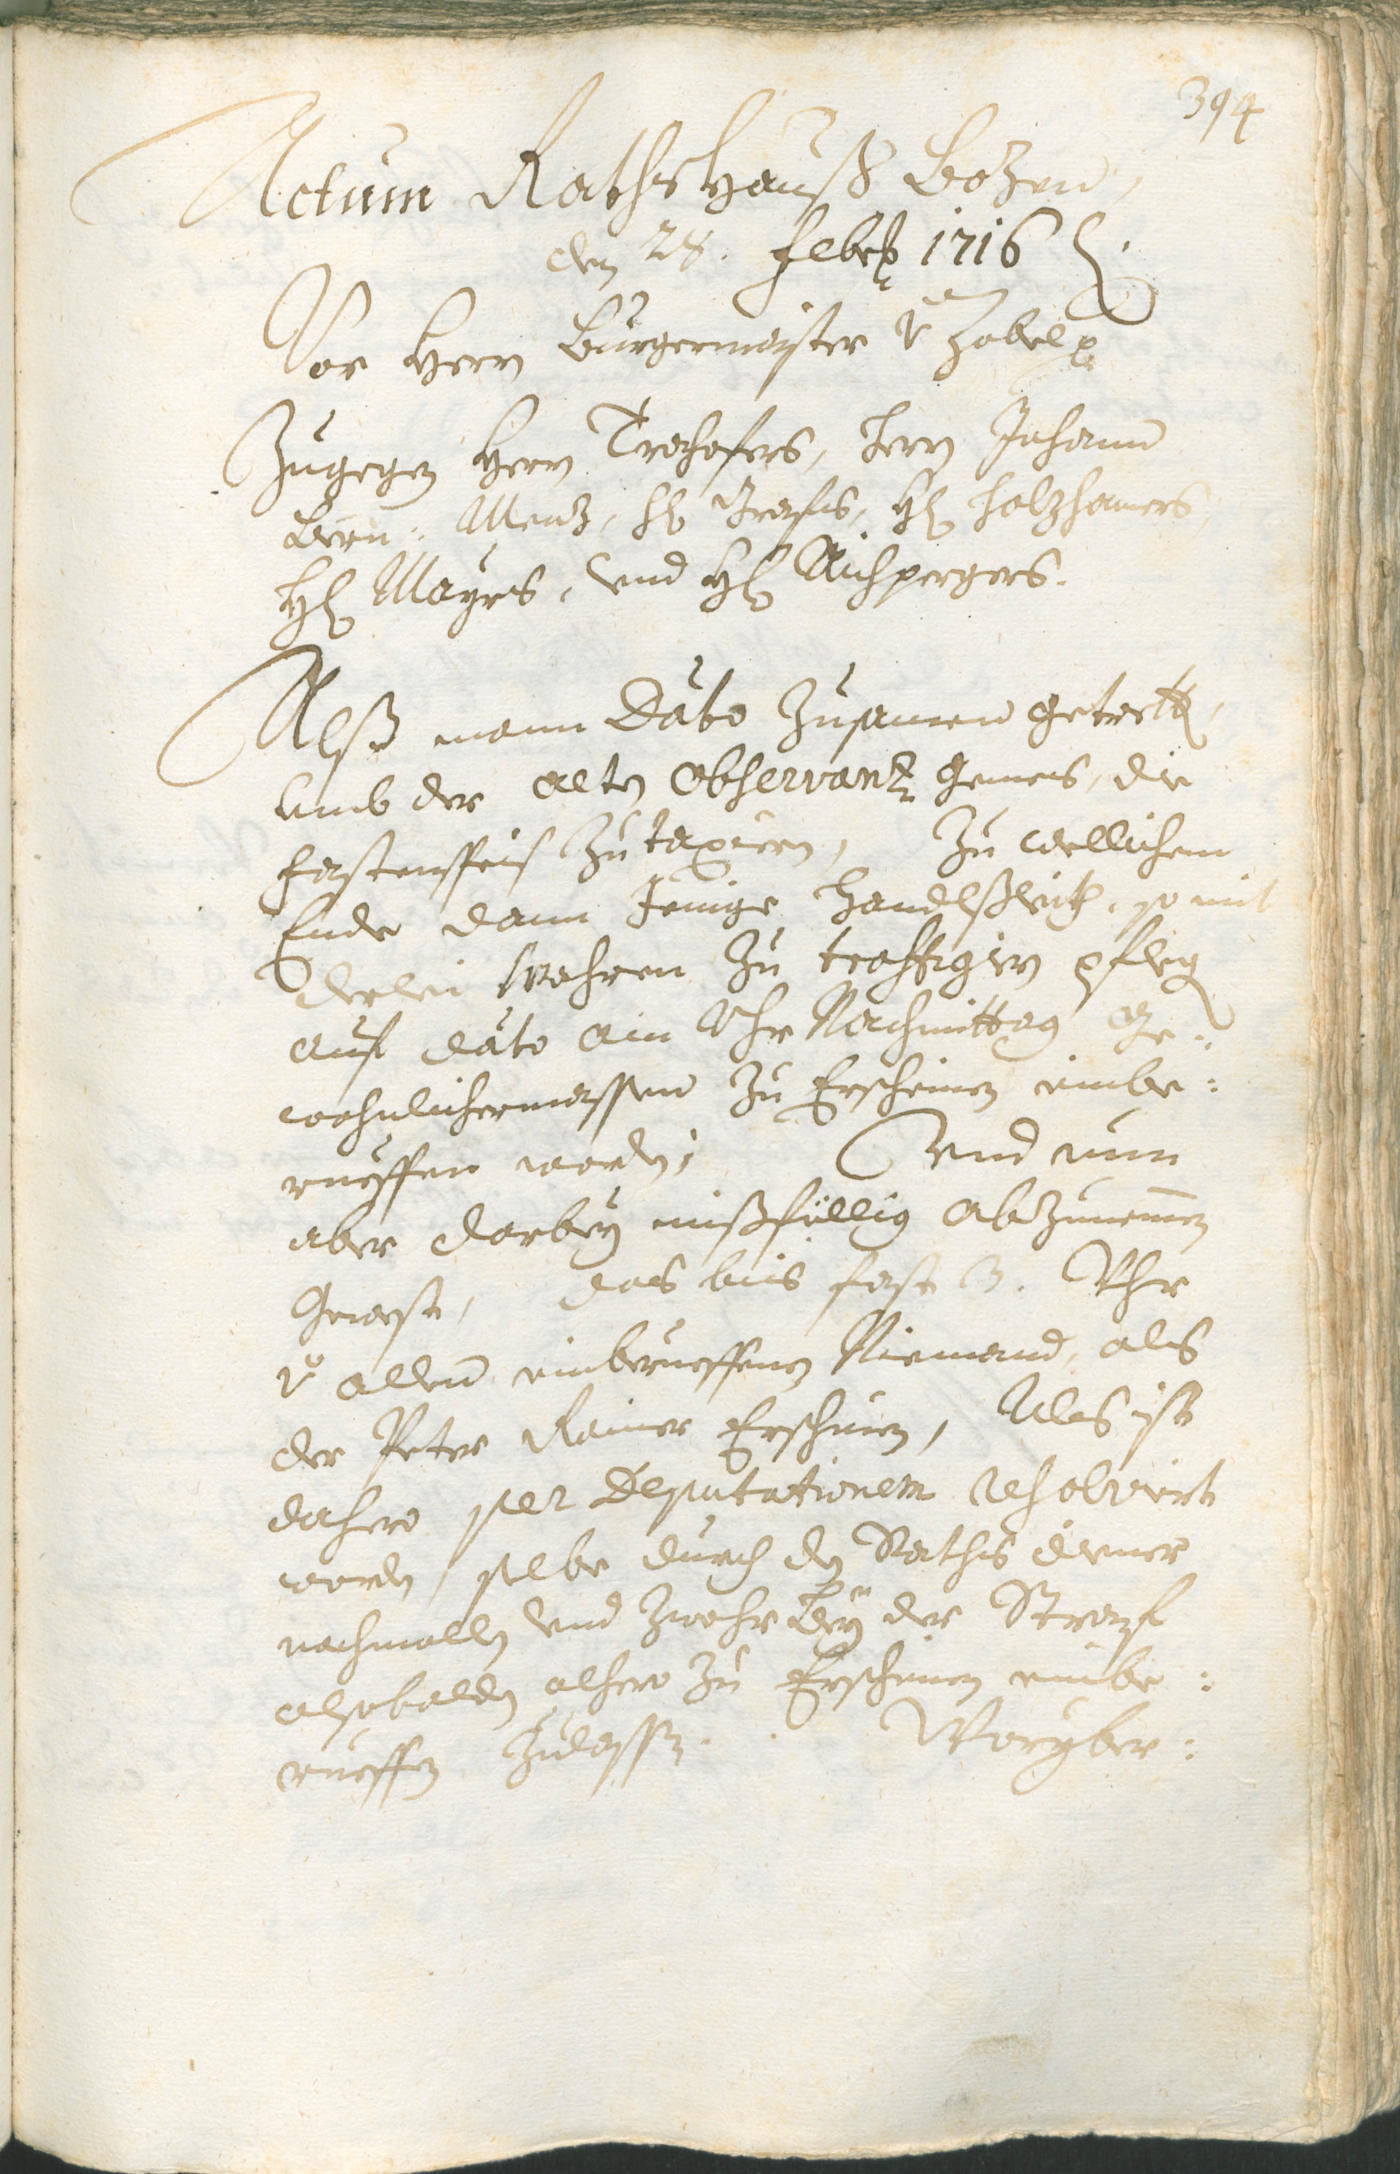 394
Actum Rathshauß Bozen,
den 28. Feber 1716
Vor Herrn Burgermaister v Zobel p
Zugegen Herrn Trochofers, Herrn Johann
Bern: Menz, H Grafns, H Holzhamers,
H Mayrs, vnd H Aichpergers.
Alß mann Dato Zusamen getrett,
vmb der alten Observanz gemes, die
fastenspeis zu taxiern, Zu wellichem
Ende dann Jenige Handlßleith, so mit
derlei Wahren zu traffigirn pfleg
auf dato ain Vhr Nachmittag ge:
wohnlichermassen zu Erscheinen einbe:
rueffen worden; Vnd nun
aber darbey mißfällig abzunemen
gewest, das biis fast 3. Vhr
v allen einberueffenen Niemand, als
der Peter Rainer Erschinen, Als ist
dahero per Deputationem resolvirt
worden, selbe durch den Raths diener
nochmallen vnd zwahr Bey der Straff
alsobalden alhero zu Erscheinen einbe:
rueffen zulassen. Woryber: